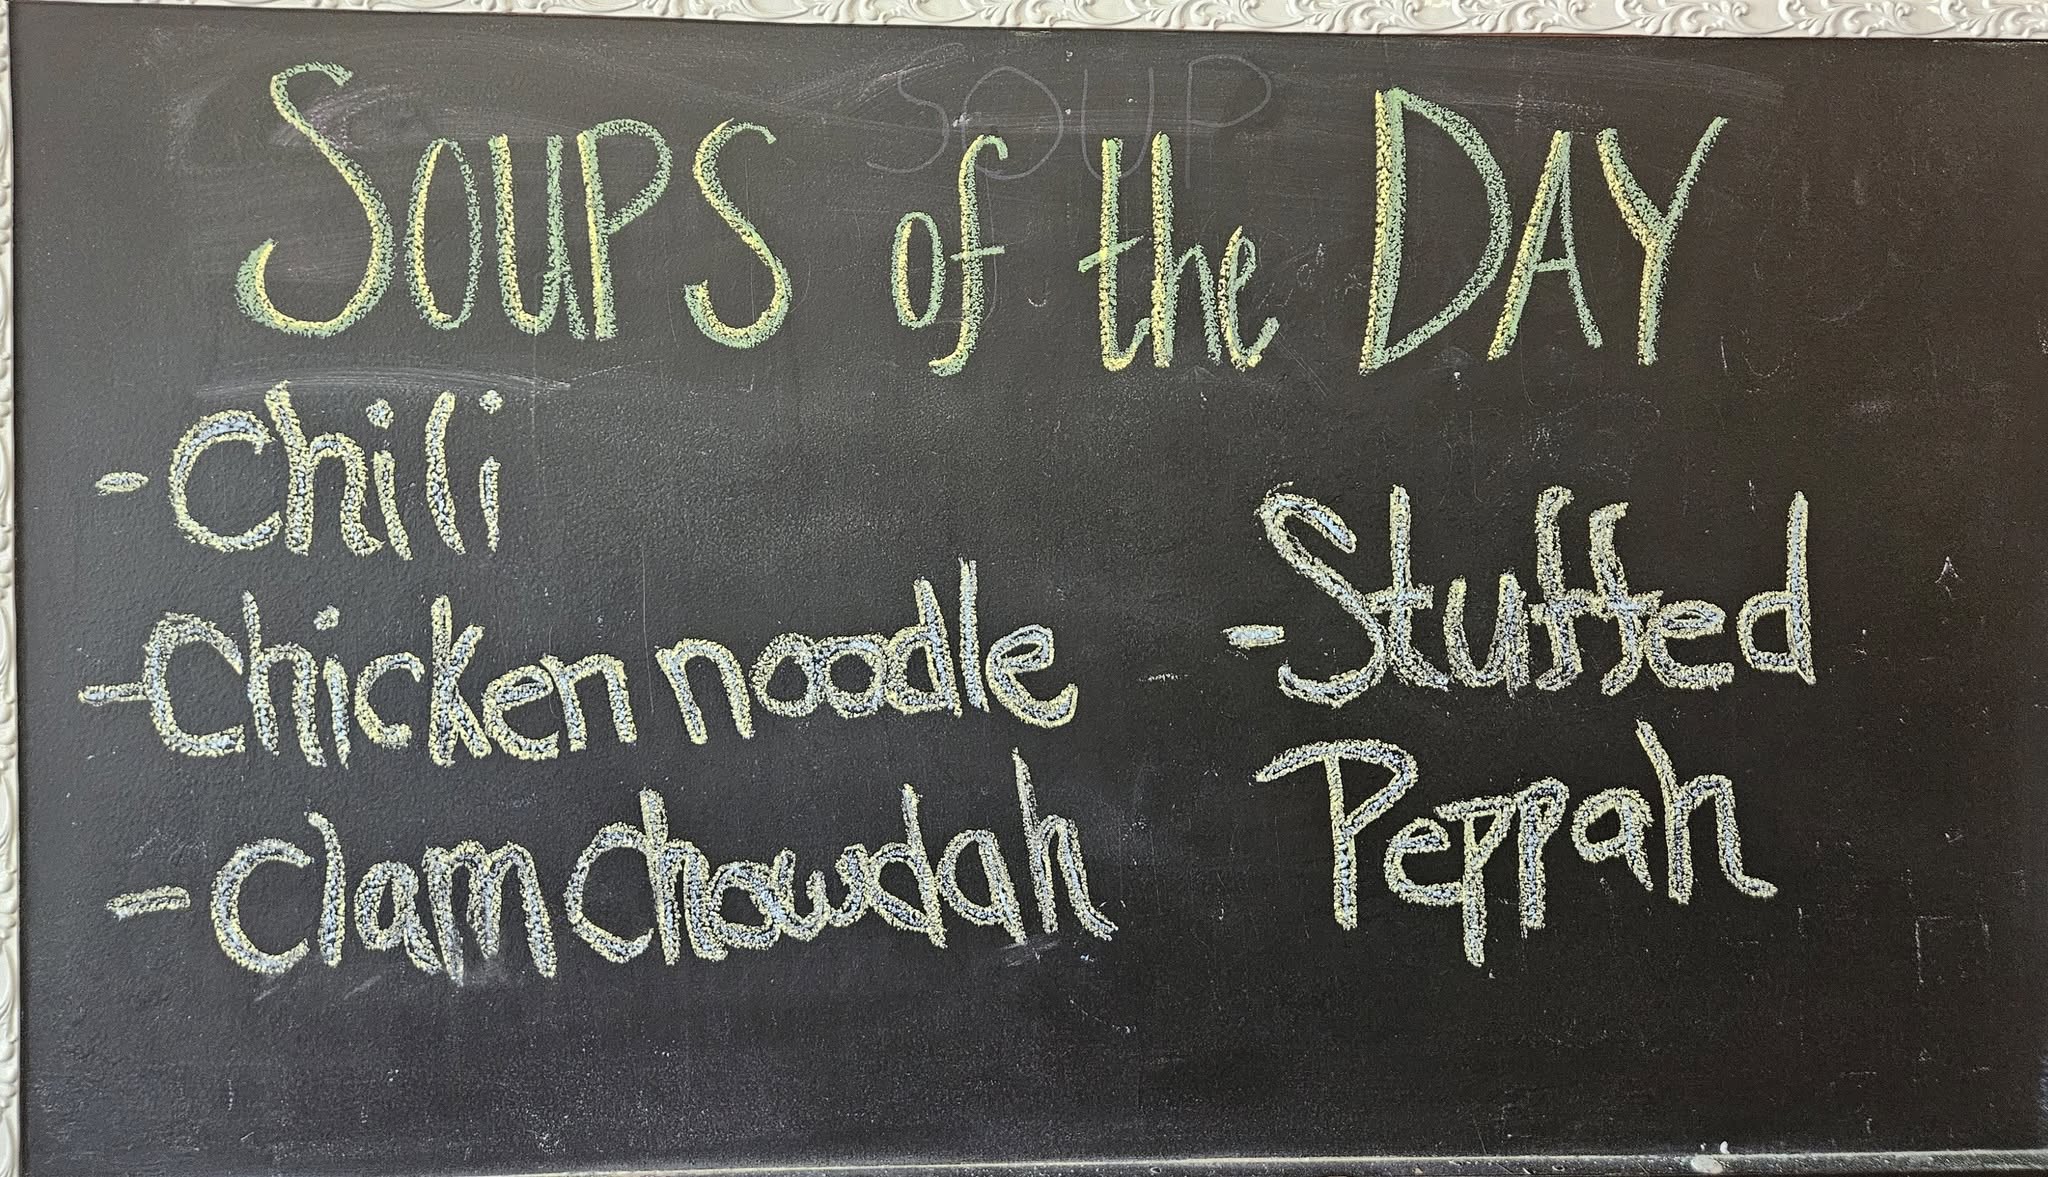 SOUP
SOUPS of the DAY
-Chili
-Chicken noodle
-Clam Chowdah
-Stuffed
Peppah